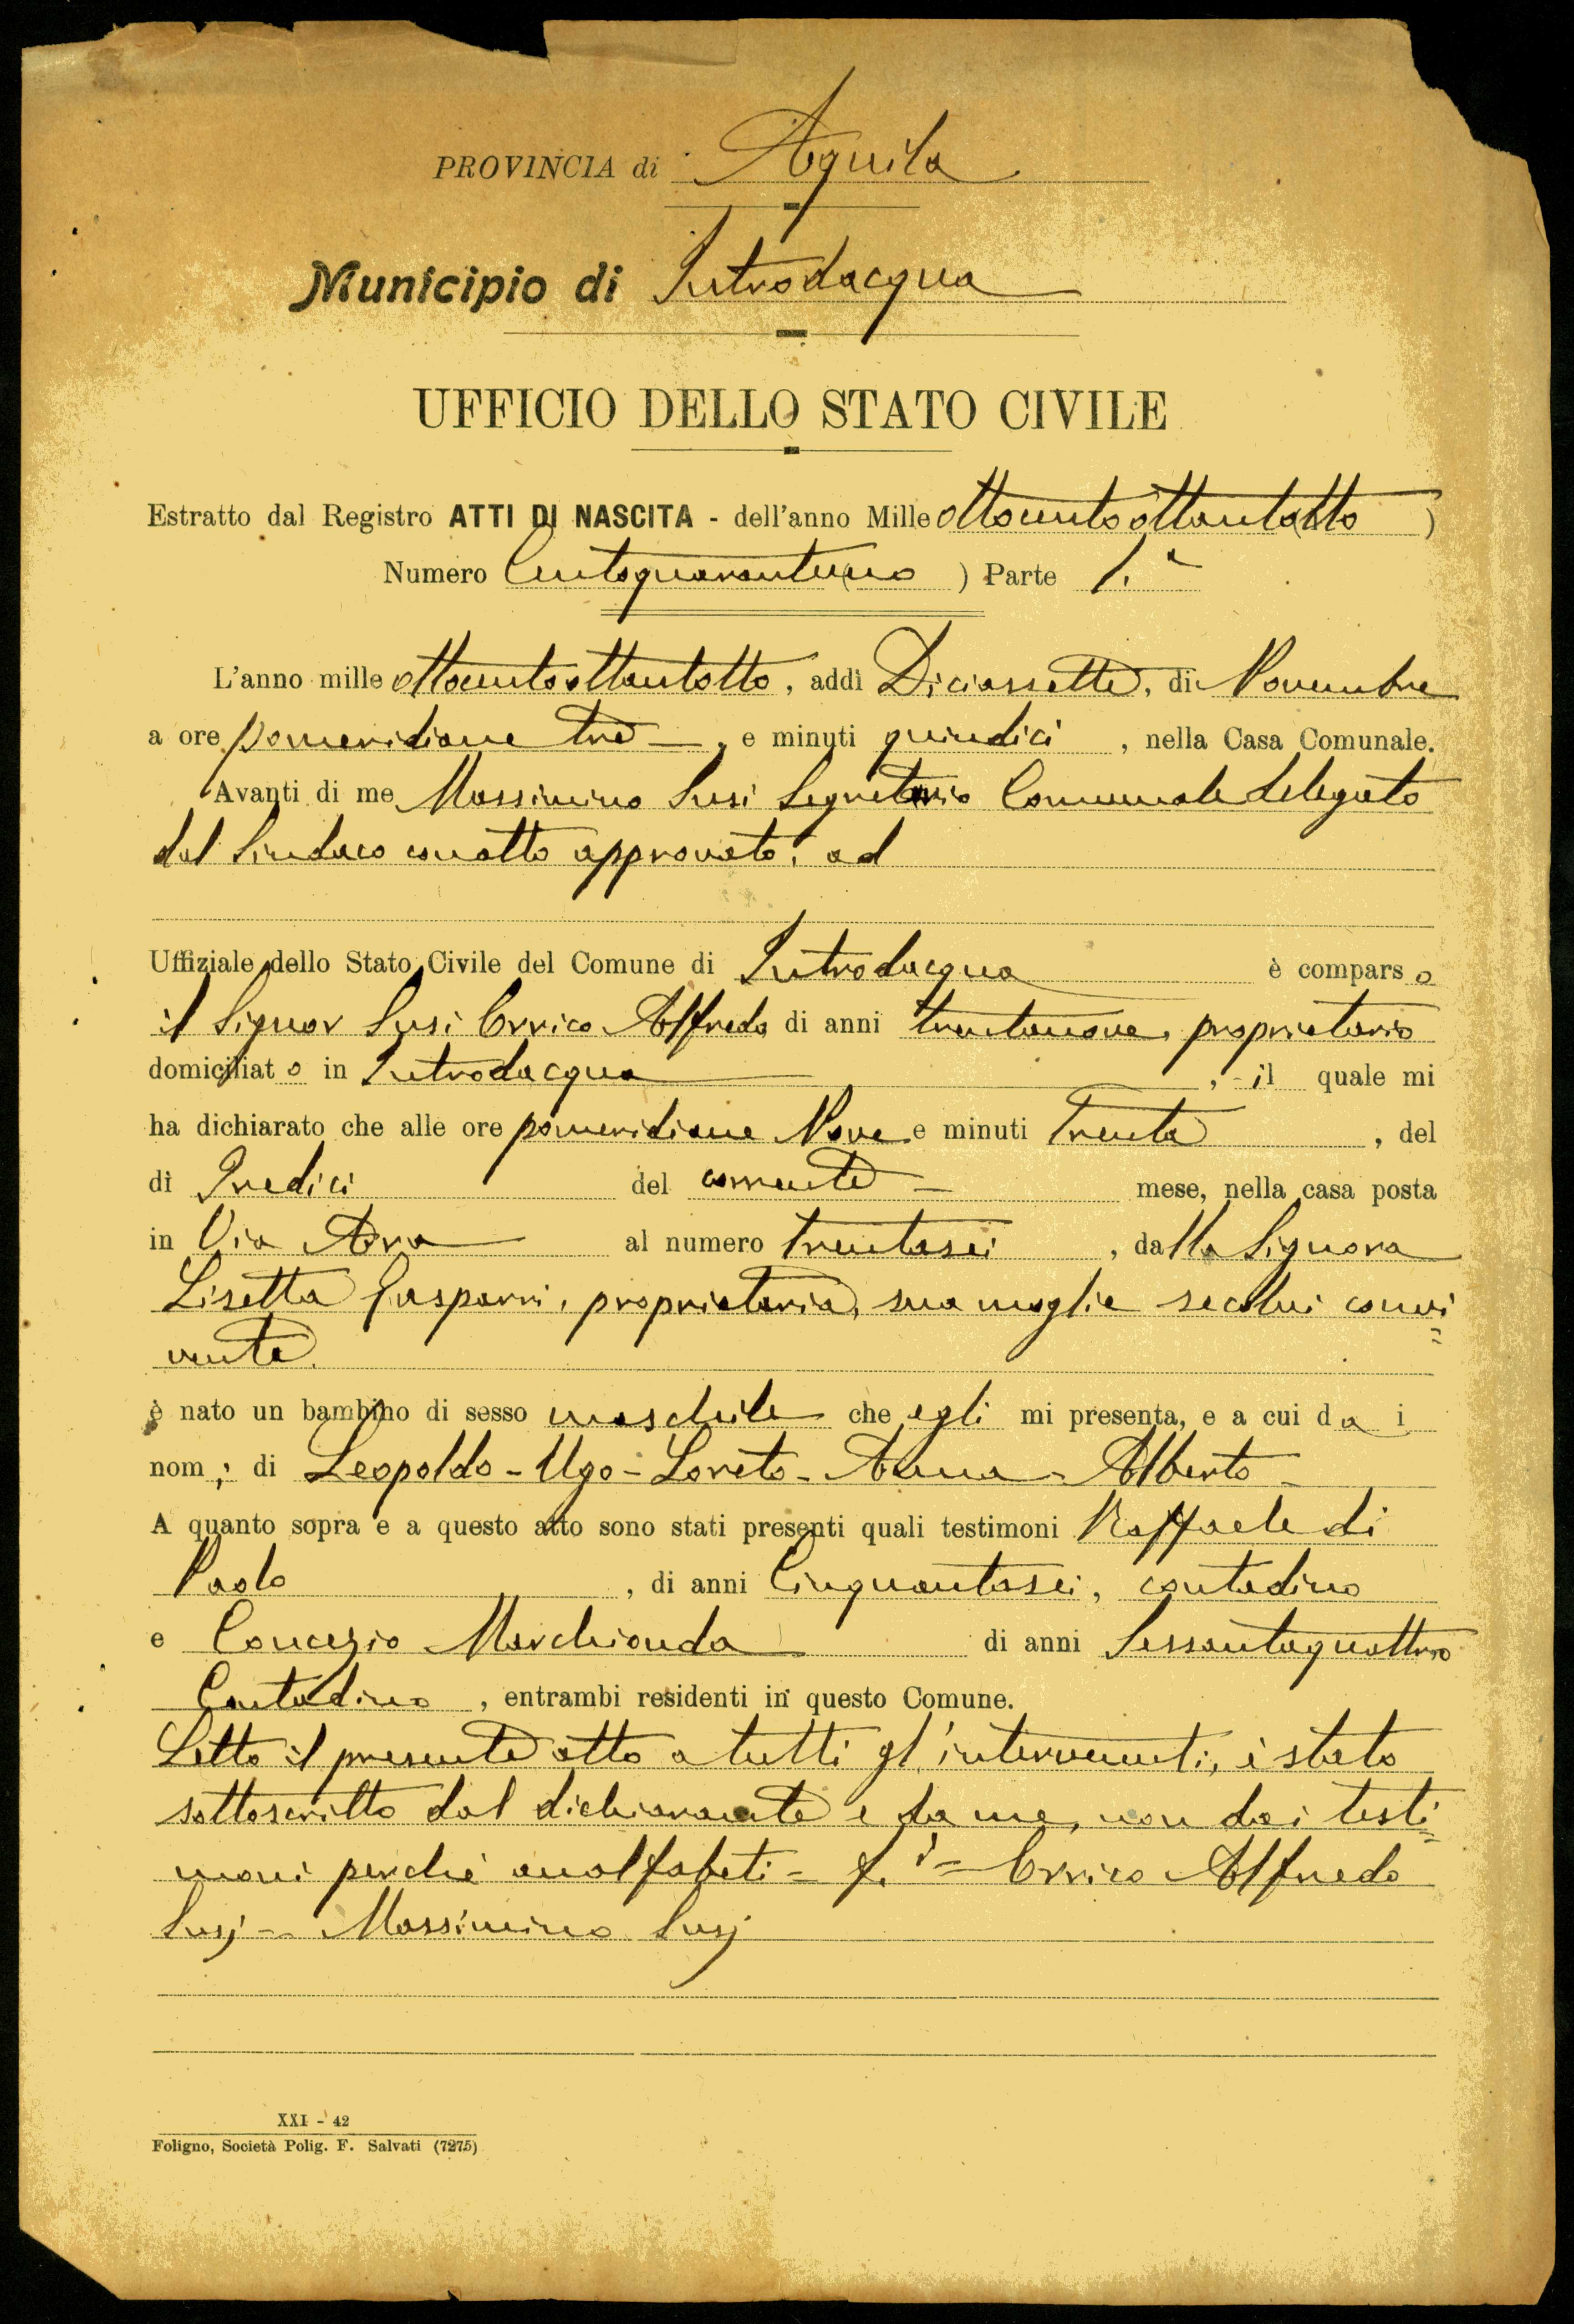 PROVINCIA di Aquila
Municipio di Introdacqua
UFFICIO DELLO STATO CIVILE
Estratto dal Registro ATTI DI NASCITA - dell'anno Mille ottocentoottantotto )
Numero Centoquarantuno ) Parte 1.ª
L'anno mille ottocentoottantotto, addì Diciassette, di Novembre
a ore pomeridiane tre —, e minuti quindici , nella Casa Comunale.
Avanti di me Massimino Susi Segretario Comunale delegato
dal Sindaco con atto approvato, ad
Uffiziale dello Stato Civile del Comune di Introdacqua è comparso
il Signor Susi Errico Alfredo di anni trentanove, proprietario
domiciliato in Introdacqua , - il quale mi
ha dichiarato che alle ore pomeridiane Nove e minuti Trenta , del
dì Tredici del corrente — mese, nella casa posta
in Via Ara al numero trentasei , dalla Signora
Lisetta Gasparri, proprietaria, sua moglie secolui convi=
vente.
è nato un bambino di sesso maschile che egli mi presenta, e a cui da i
nomi di Leopoldo - Ugo - Loreto - Anna - Alberto -
A quanto sopra e a questo atto sono stati presenti quali testimoni Raffaele di
Paolo , di anni Cinquantasei, contadino
e Concezio Marchionda di anni Sessantaquattro
Contadino , entrambi residenti in questo Comune.
Letto il presente atto a tutti gl'intervenuti, è stato
sottoscritto dal dichiarante e da me, non dai testi=
moni perchè analfabeti = f.i = Errico Alfredo
Susj - Massimino Susj
XXI - 42
Foligno, Società Polig. F. Salvati (7275)